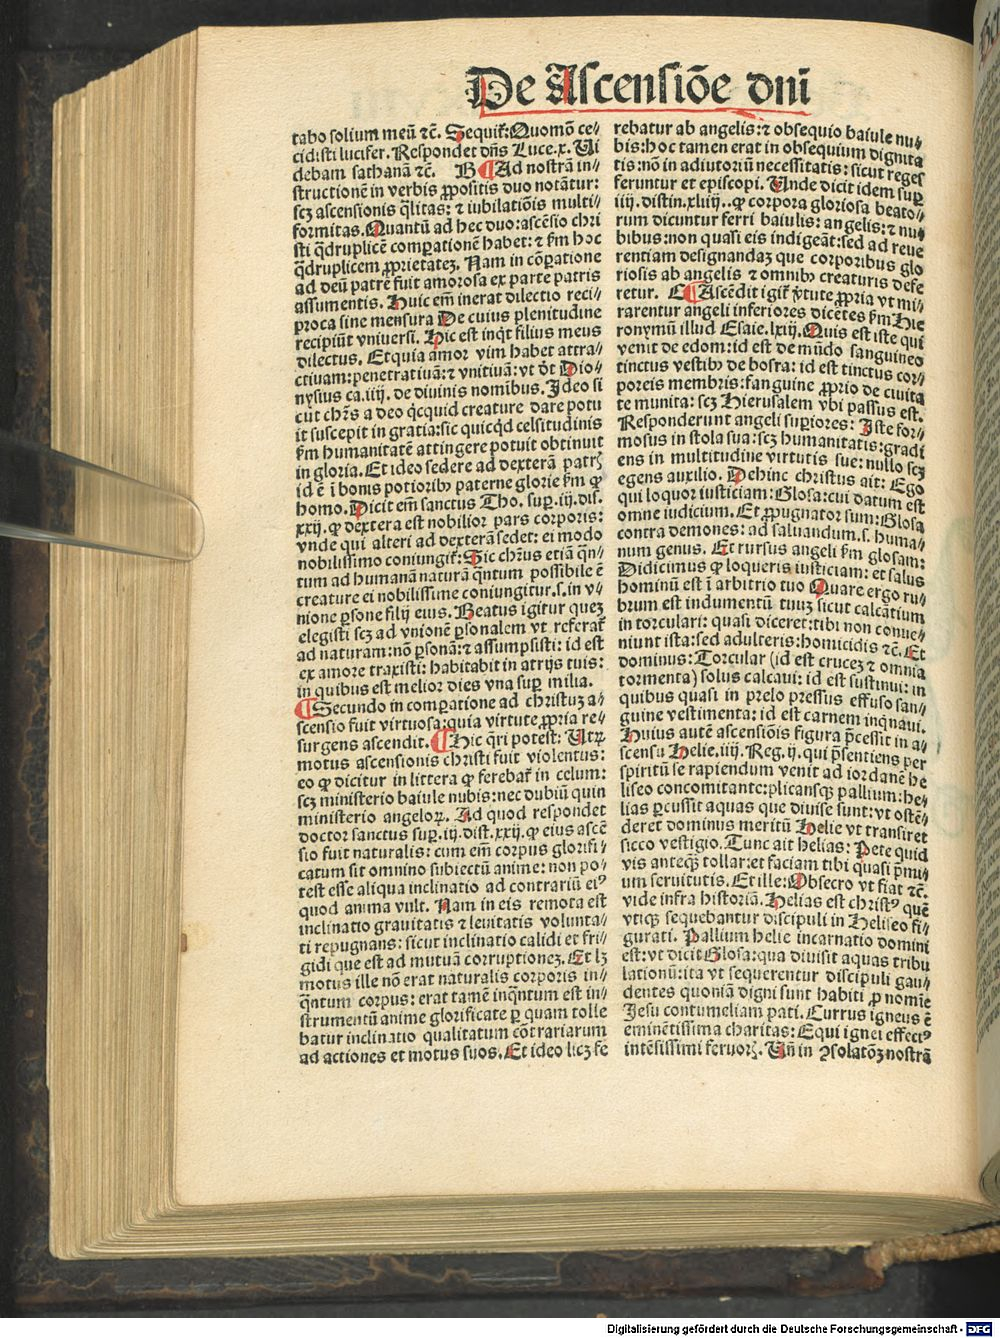 De Ascensiõe dnĩ
tabo solium meũ ⁊c̃. Sequit̃: Quomõ ce//
cidisti lucifer. Respondet dñs Luce.x. Ui
debam sathanã ⁊c̃. B ¶ Ad nostrã in//
structionẽ in verbis ꝓpositis duo notãtur:
scꝫ ascensionis q̃litas: ⁊ iubilatiõis multi//
formitas. Quantũ ad hec duo: ascẽsio chri
sti q̃druplicẽ comꝑationẽ habet: ⁊ ẜm hoc
q̃druplicem ꝓprietateꝫ. Nam in cõꝑatione
ad deũ patrẽ fuit amorosa ex parte patris
assumentis. Huic em̃ inerat dilectio reci//
proca sine mensura De cuius plenitudine
recipiũt vniuersi. Hic est inqt filius meus
dilectus. Et quia amor vim habet attra//
ctiuam: penetratiuã: ⁊ vnitiuã: vt dt̃ Dio//
nysius ca.iiij. de diuinis nomibus. Ideo si
cut chr̃s a deo qcquid creature dare potu
it suscepit in gratia: sic quicqd celsitudinis
ẜm humanitatẽ attingere potuit obtinuit
in gloria. Et ideo sedere ad dexterã patrꝭ
id ẽ ĩ bonis potioribꝰ paterne glorie ẜm ꝙ
homo. Dicit em̃ sanctus Tho. suꝑ .iij. dis.
xxij. ꝙ dextera est nobilior pars corporis:
vnde qui alteri ad dexterã sedet: ei modo
nobilissimo coniungit̃: Sic chr̃us etiã q̃n//
tum ad humanã naturã q̃ntum possibile ẽ
creature ei nobilissime coniungitur.s. in v//
nione ꝑsone filij eius. Beatus igitur queꝫ
elegisti scꝫ ad vnionẽ ꝑsonalem vt referat̃
ad naturam: nõ ꝑsonã: ⁊ assumpsisti: id est
ex amore traxisti: habitabit in atrijs tuis:
in quibus est melior dies vna suꝑ milia.
¶ Secundo in comꝑatione ad christuꝫ a//
scensio fuit virtuosa: quia virtute ꝓpria re//
surgens ascendit. ¶ Hic q̃ri potest: Utꝝ
motus ascensionis christi fuit violentus:
eo ꝙ dicitur in littera ꝙ ferebat̃ in celum:
scꝫ ministerio baiule nubis: nec dubiũ quin
ministerio angeloꝝ. Ad quod respondet
doctor sanctus suꝑ .iij. dist. xxij. ꝙ eius ascẽ
sio fuit naturalis: cum em̃ corpus glorifi//
catum sit omnino subiectũ anime: non po//
test esse aliqua inclinatio ad contrariũ eiꝰ
quod anima vult. Nam in eis remota est
inclinatio grauitatis ⁊ leuitatis volunta//
ti repugnans: sicut inclinatio calidi et fri//
gidi que est ad mutuã corruptioneꝫ. Et lꝫ
motus ille nõ erat naturalis corporis in//
q̃ntum corpus: erat tamẽ inq̃ntum est in//
strumentũ anime glorificate ꝑ quam tolle
batur inclinatio qualitatum cõtrariarum
ad actiones et motus suos. Et ideo licꝫ fe
rebatur ab angelis: ⁊ obsequio baiule nu//
bis: hoc tamen erat in obsequium dignita
tis: nõ in adiutoriũ necessitatis: sicut reges
feruntur et episcopi. Unde dicit idem suꝑ
iiij. distin. xliiij. ꝙ corpora gloriosa beato//
rum dicuntur ferri baiulis: angelis: ⁊ nu//
bibus: non quasi eis indigeãt: sed ad reue
rentiam designandaꝫ que corporibus glo
riosis ab angelis ⁊ omnibꝰ creaturis defe
retur. C ¶ Ascẽdit igit̃ v̓tute ꝓpria vt mi//
rarentur angeli inferiores dicẽtes ẜm Hie
ronymũ illud Esaie.lxiij. Quis est iste qui
venit de edom: id est de mũdo sanguineo
tinctus vestibꝰ de bosra: id est tinctus cor//
poreis membris: sanguine ꝓprio de ciuita
te munita: scꝫ Hierusalem vbi passus est.
Responderunt angeli suꝑiores: Iste for//
mosus in stola sua: scꝫ humanitatis: gradi
ens in multitudine virtutis sue: nullo scꝫ
egens auxilio. Dehinc christus ait: Ego
qui loquor iusticiam: Glosa: cui datum est
omne iudicium. Et ꝓpugnator sum: Glosa
contra demones: ad saluandum .s. huma//
num genus. Et rursus angeli ẜm glosam:
Didicimus ꝙ loqueris iusticiam: et salus
hominũ est ĩ arbitrio tuo Quare ergo ru//
brum est indumentũ tuuꝫ sicut calcãtium
in torculari: quasi diceret: tibi non conue//
niunt ista: sed adulteris: homicidis ⁊c̃. Et
dominus: Torcular (id est cruceꝫ ⁊ omnia
tormenta) solus calcaui: id est sustinui: in
quibus quasi in prelo pressus effuso san//
guine vestimenta: id est carnem inq̃naui.
Huius autẽ ascensiõis figura p̃cessit in a//
scensu Helie.iiij. Reg.ij. qui p̃sentiens per
spiritũ se rapiendum venit ad iordanẽ he
liseo concomitante: plicansqꝫ pallium: he//
lias ꝑcussit aquas que diuise sunt: vt ostẽ//
deret dominus meritũ Helie vt transiret
sicco vestigio. Tunc ait helias: Pete quid
vis anteq̃ꝫ tollar: et faciam tibi quasi p̃mi//
um seruitutis. Et ille: Obsecro vt fiat ⁊c̃.
vide infra historiã. Helias est christꝰ quẽ
vtiqꝫ sequebantur discipuli in Heliseo fi//
gurati. Pallium helie incarnatio domini
est: vt dicit Glosa: qua diuisit aquas tribu
lationũ: ita vt sequerentur discipuli gau//
dentes quoniã digni sunt habiti ꝓ nomĩe
Jesu contumeliam pati. Currus igneus ẽ
eminẽtissima charitas: Equi ignei effectꝰ
intẽsissimi feruorꝭ. Uñ in ꝯsolatõꝫ nostrã
Digitalisierung gefördert durch die Deutsche Forschungsgemeinschaft - DFG